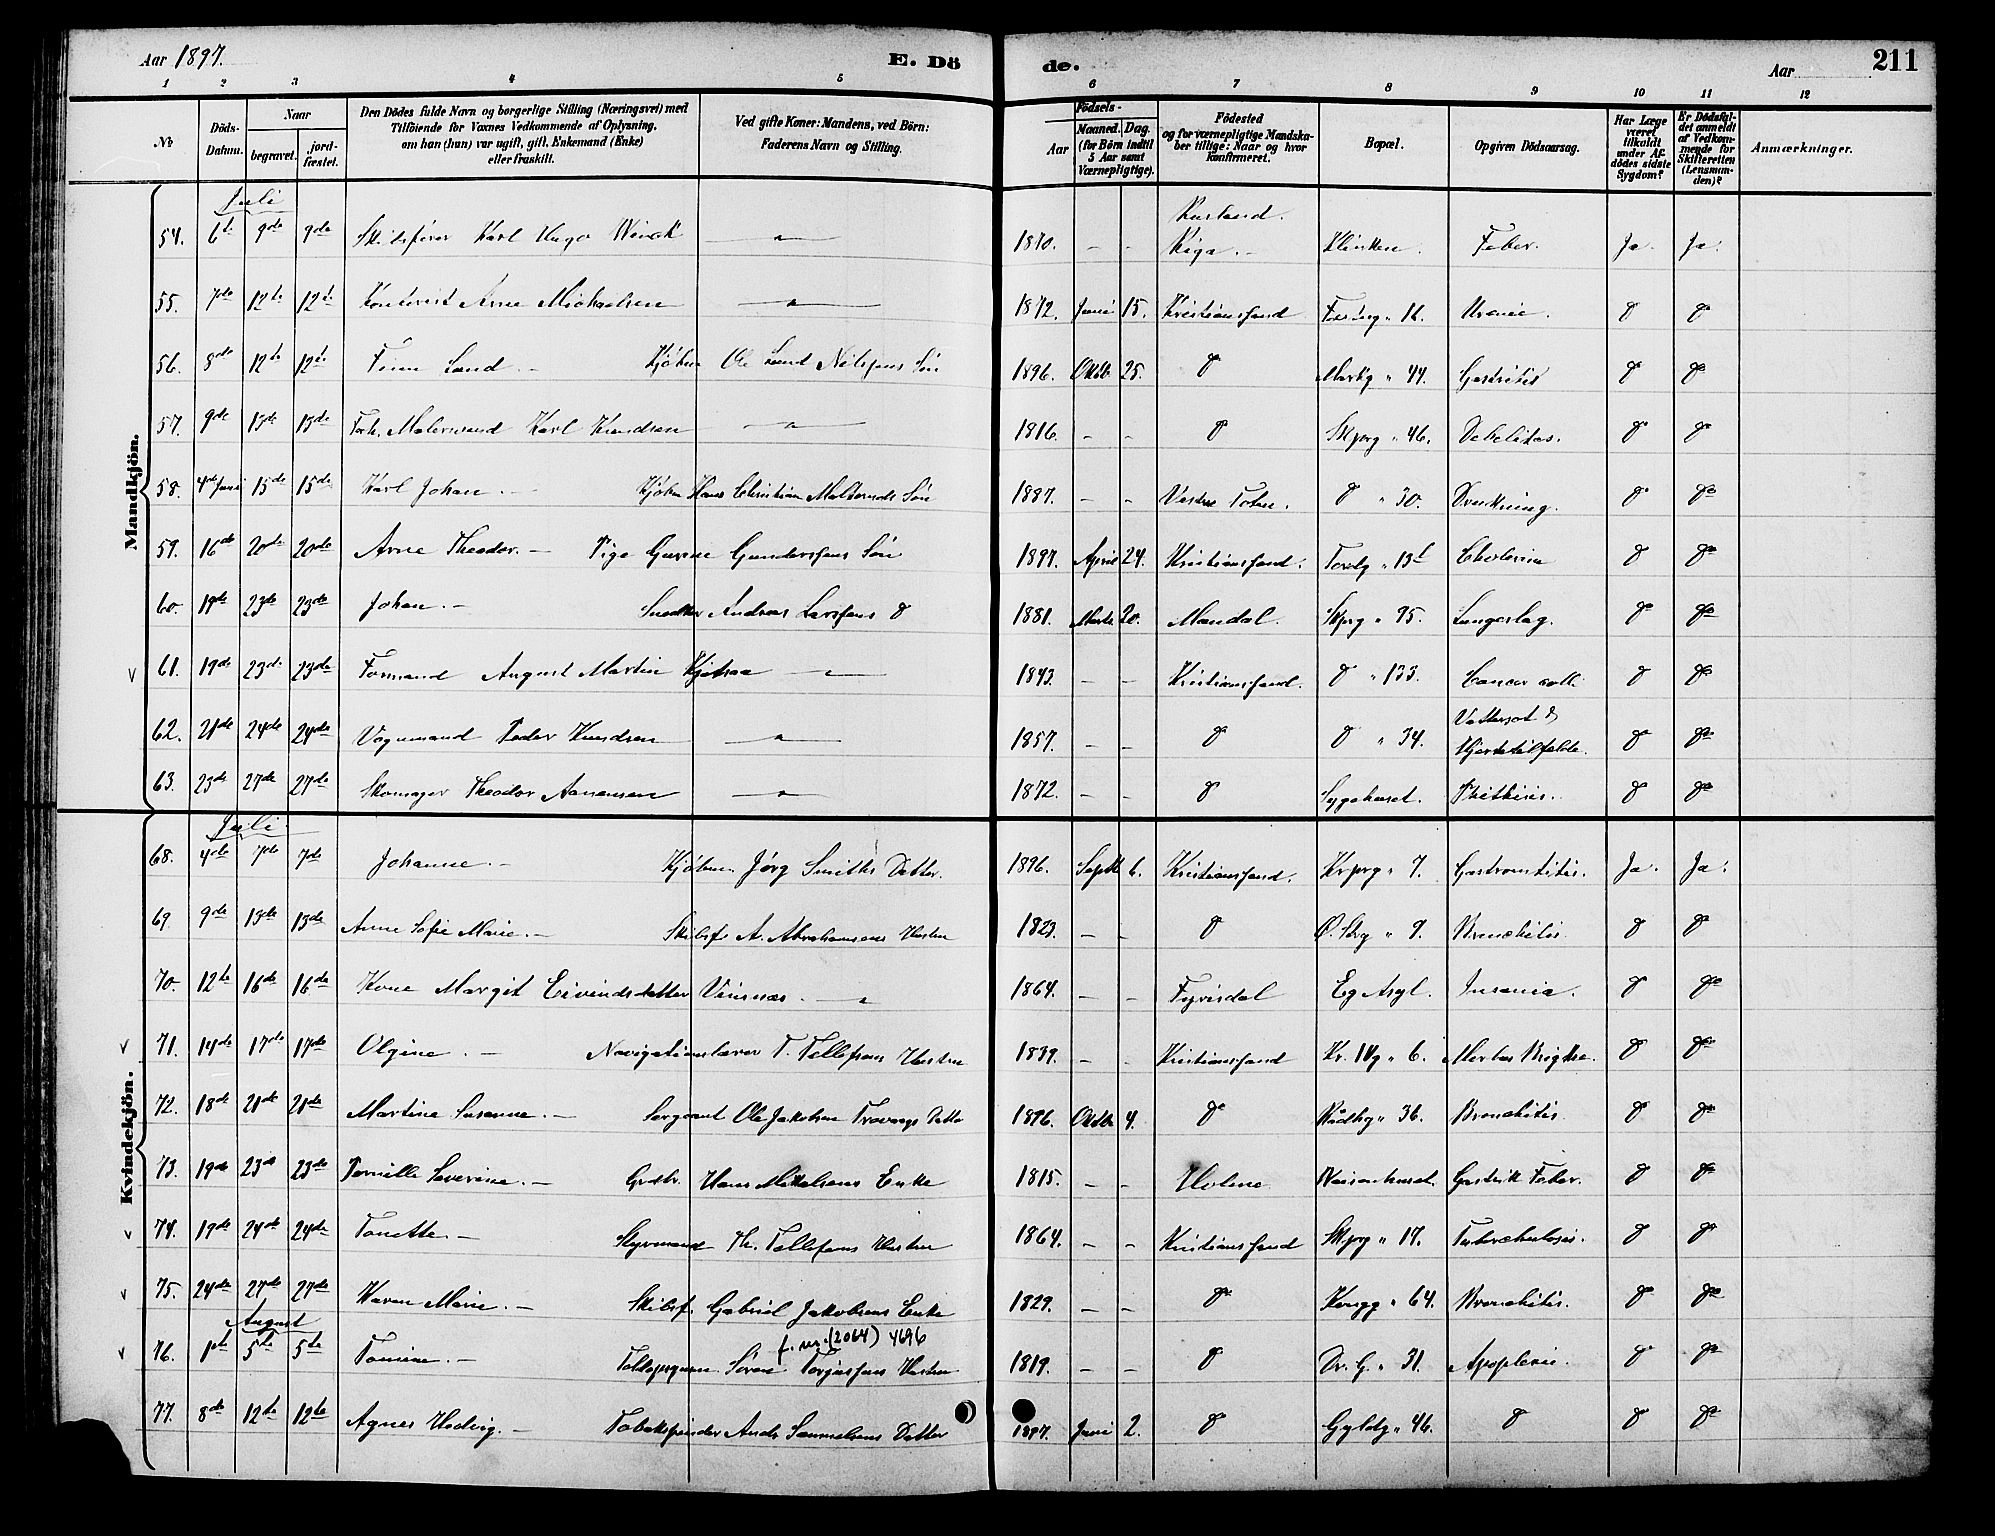 Aar 1897.
E. Dö
de.
Aar
211
1 2 3 4 5 6 7 8 9 10 11 12
No
Döds-Datum.
Naar
begravet.
jord-fæstet.
Den Dödes fulde Navn og borgerlige Stilling (Næringsvei) med
Tilföiende for Voxnes Vedkommende af Oplysning,
om han (hun) var ugift, gift, Enkemand (Enke)
eller fraskilt.
Ved gifte Koner: Mandens, ved Börn:
Faderens Navn og Stilling.
Födsels-
Aar
Maaned. Dag.
(for Börn indtil
5 Aar samt
Værnepligtige).
Födested
og for værnepligtige Mandska-
ber tillige: Naar og hvor
konfirmeret.
Bopæl.
Opgiven Dödsaarsag.
Har Læge
været
tilkaldt
under Af-
dödes sidste
Sygdom?
Er Dödsfal-
det anmeldt
af Vedkom-
mende for
Skifteretten
(Lensman-
den)?
Anmærkninger.
Mandkjön.
Juli
54. 6te 9de 9de Skibsfører Karl Hugo Winck — " — 1870. - - Kurland. Riga. Kliniken. Feber. Ja. Ja.
55. 7de 12te 12te Kontorist Arne Michaelsen — " — 1872. Juni 15. Kristianssand " 16. Uræmie. d d
56. 8de 12te 12te Finn Lund. - Kjøbm Ole Lund Nilssens Søn 1896. Oktbr 25. d Markg " 44. Gastritis d do
57. 9de 13de 13de Forh. Malersvend Karl Knudsen — " — 1816. - - d Skprg " 46. Debilitas. d d
58. 4de Juni 15de 15de Karl Johan. - Kjøbm Hans Christian Søn 1887. Vestre Toten. d " 30. Drukning. d do
59. 16de 20de 20de Arne Theodor. - Pige Gurine Gundersens Søn 1897. April 24. Kristianssand. Tordg " 13 Cholerine d do
60. 19de 23de 23de Johan. - Snedker Andreas Larssens d 1881. Marts 20. Mandal. Skprg " 95. Lungeslag. d do
61. 19de 23de 23de Formand August Martin — " — 1843. - - Kristianssand. d " 133. Cancer colli d do
62. 21de 24de 24de Vognmand Peder Knudsen — " — 1857. - - d d " 34. Vattersot & Hjertetilfælde. d do
63. 23de 27de 27de Skomager Theodor Aanensen — " — 1872. - - d Sygehuset. Phithisis. d do
Kvindekjön.
Juli
68. 4de 7de 7de Johanne. - Kjøbm. Jørg Smiths Datter. 1896. Septb 6. Kristianssand. Krprg " 7. Ja. Ja.
69. 9de 13de 13de Anne Sofie Marie. - Skibsf. A. Abrahamsens Hustru 1823. - - d Ø. Stg " 9. Bronchitis. d d
70. 12te 16de 16de Kone Margit Eivindsdatter Vinsnæs. — " 1864. - - Fyrisdal Eg Asyl. Insania. d do
71. 14de 17de 17de Olgine. - Navigationslærer T. Tellefsens Hustru 1839. - - Kristianssand Kr. IVg " 6. Morbus Brightæ. d do
72. 18de 21de 21de Martine Susanne. - Sergeant Ole Jakobsen Datter 1896. Oktbr 4. d Rådhg " 36. Bronchitis. d do
73. 19de 23de 23de Pernille Severine. - Grdbr. Hans Mikkelsens Enke 1815. - - Holme Waisenhuset. Gastrisk Feber. d do
74. 19de 24de 24de Tonette. - Styrmand Th. Tellefsens Hustru 1864. - - Kristianssand Skprg " 17. Tuberchulosis. d d
75. 24de 27de 27de Karen Marie. - Skibsf. Gabriel Jakobsens Enke 1829. - - do Kongg " 64. Bronchitis. d do
August
f. nr. (2064) 4696
76. 1ste 5te 5te Tomine. - Søren Torjussens Hustru 1819. - - d Dr. G. " 31. Apoplexie. d do
77. 8de 12te 12te Agnes Hedvig. - Tobakspinder Andr Sammelsens Datter 1897. Juni 2. d Gyldg " 46. d d do